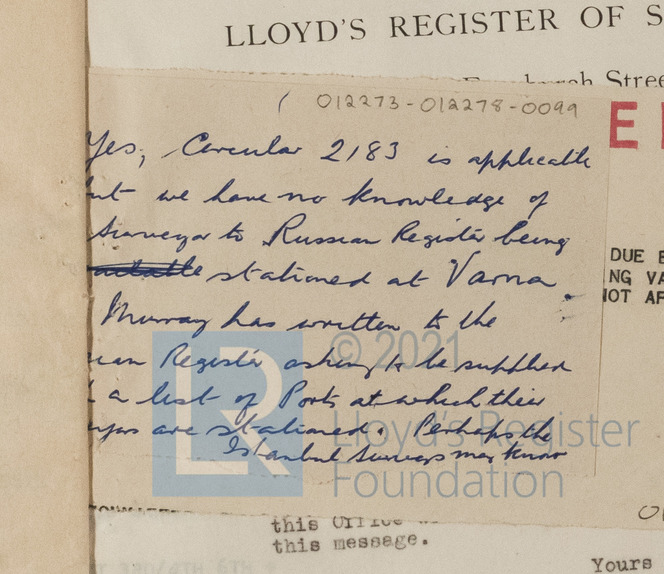 LLOYD'S REGISTER OF S
012273-012278-0099
Yes, Circular 2183 is applicable
but we have no knowledge of
Surveyor to Russian Register being
stationed at Varna.
Murray has written to the
Register asking to be supplied
a list of Ports at which their
are stationed. Perhaps the
Istanbul Surveyors may know
DUE
NG VA
NOT AF
© 2021
LR
Lloyd's Register
Foundation
this Office
this message.
Yours